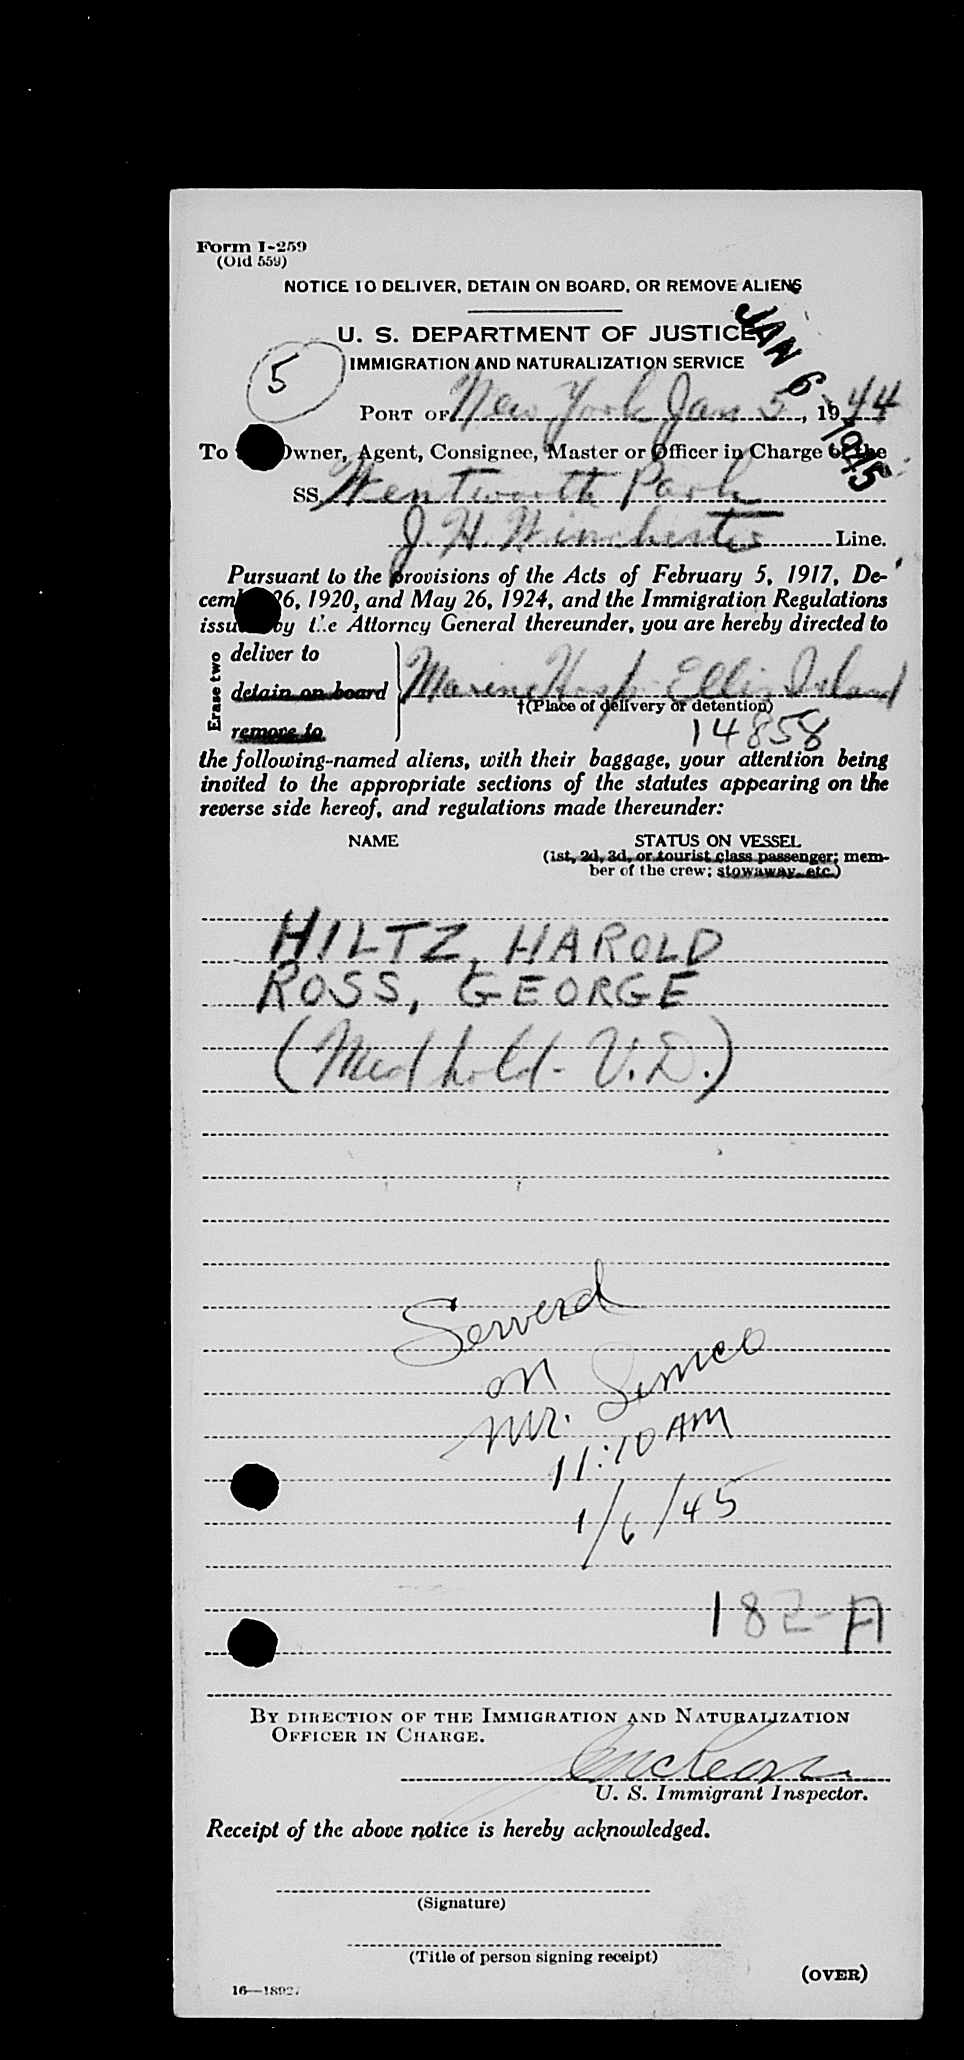 Form I-259
(Old 559)
NOTICE TO DELIVER, DETAIN ON BOARD, OR REMOVE ALIENS
U. S. DEPARTMENT OF JUSTICE
IMMIGRATION AND NATURALIZATION SERVICE
JAN 6 1945
5
PORT OF New York Jan 5, 1944
To Owner, Agent, Consignee, Master or Officer in Charge of the
SS. Wentworth Park
J. H. Winchester Line.
Pursuant to the provisions of the Acts of February 5, 1917, De-
cember 26, 1920, and May 26, 1924, and the Immigration Regulations
issued by the Attorney General thereunder, you are hereby directed to
Erase two
deliver to
detain on board
remove to
Marine Hosp. Ellis Island
†(Place of delivery or detention)
14858
the following-named aliens, with their baggage, your attention being
invited to the appropriate sections of the statutes appearing on the
reverse side hereof, and regulations made thereunder:
NAME STATUS ON VESSEL
(1st, 2d, 3d, or tourist class passenger; mem-
ber of the crew; stowaway, etc.)
HILTZ, HAROLD
ROSS, GEORGE
(Med hold - V.D.)
Serverd
on
Mr. Simco
11:10 AM
1/6/45
182-A
BY DIRECTION OF THE IMMIGRATION AND NATURALIZATION
OFFICER IN CHARGE.
U. S. Immigrant Inspector.
Receipt of the above notice is hereby acknowledged.
(Signature)
(Title of person signing receipt)
(OVER)
16—18927